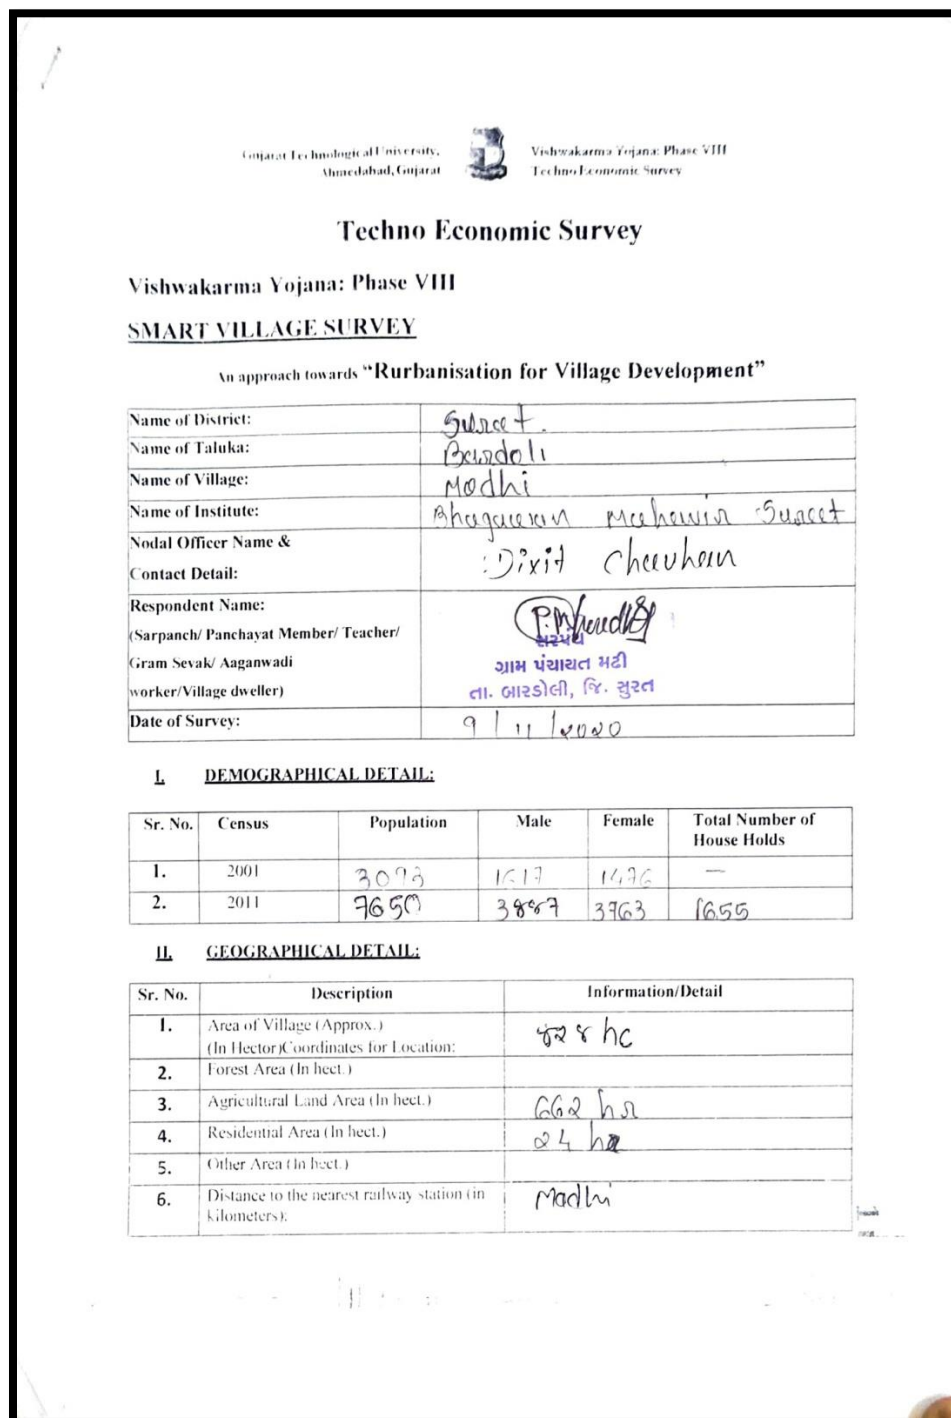 Gujarat Technological University,
Ahmedabad, Gujarat
Vishwakarma Yojana: Phase VIII
Techno Economic Survey
Techno Economic Survey
Vishwakarma Yojana: Phase VIII
SMART VILLAGE SURVEY
An approach towards “Rurbanisation for Village Development”
Name of District: Surat.
Name of Taluka: Bardoli
Name of Village: Madhi
Name of Institute: Bhagawan Mahavir Surat
Nodal Officer Name &
Contact Detail: Dixit Chauhan
Respondent Name:
(Sarpanch/ Panchayat Member/ Teacher/
Gram Sevak/ Aaganwadi
worker/Village dweller)
સરપંચ
ગ્રામ પંચાયત મઢી
તા. બારડોલી, જિ. સુરત
Date of Survey: 9/11/2020
I. DEMOGRAPHICAL DETAIL:
Sr. No. Census Population Male Female Total Number of
House Holds
1. 2001 3093 1617 1476 —
2. 2011 7650 3887 3763 1655
II. GEOGRAPHICAL DETAIL:
Sr. No. Description Information/Detail
1. Area of Village (Approx.)
(In Hector)Coordinates for Location: hc
2. Forest Area (In hect.)
3. Agricultural Land Area (In hect.) 662
4. Residential Area (In hect.) 24
5. Other Area (In hect.)
6. Distance to the nearest railway station (in
kilometers): Madhi